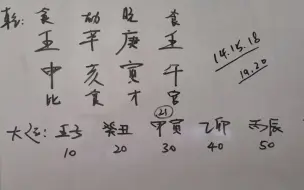 乾: 食 劫 日 食
壬 辛 庚 壬
申 亥 寅 午
比 食 才 官
14.15.18
19.20
21
大运: 壬子 癸丑 甲寅 乙卯 丙辰
10 20 30 40 50